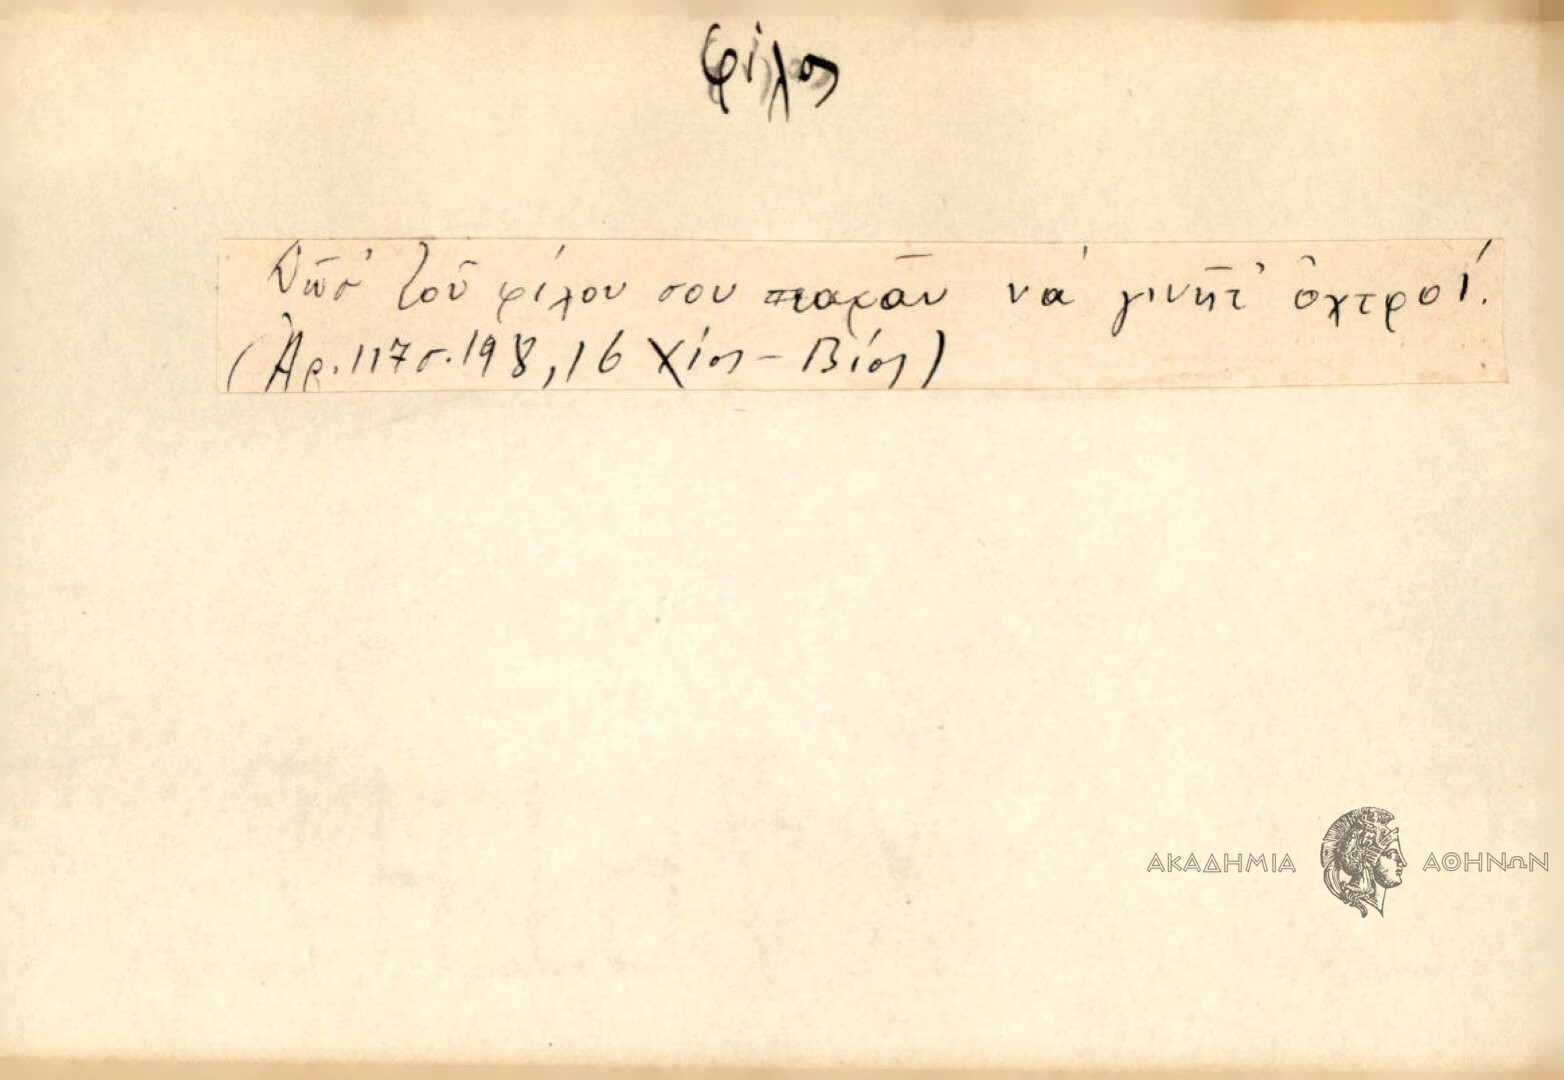 φίλος
τοῦ φίλου σου παρᾶν νὰ γινῆτ' ὀχτροί.
(Ἀρ. 117 σ. 198, 16 Χίος - Βίος)
ΑΚΑΔΗΜΙΑ ΑΘΗΝΩΝ